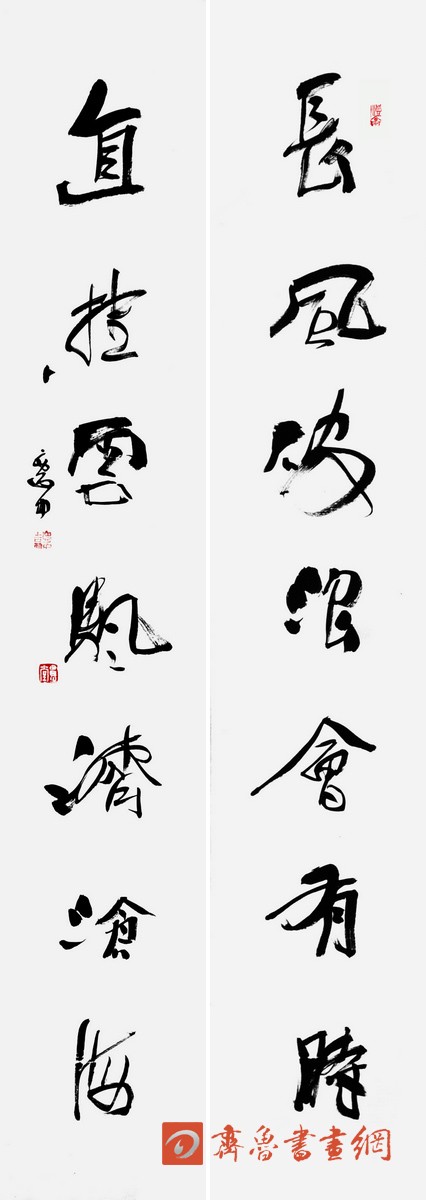 長風破浪會有時
直掛雲颿濟滄海
齊魯書畫網